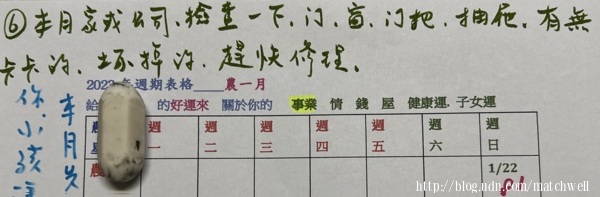 ⑥本月家或公司,檢查一下,门,窗,门把,抽屜,有無
卡卡的,坏掉的,趕快修理。
2023年週期表格____農一月
給 的好運來 關於你的 事業 情 錢 屋 健康運.子女運
週 週 週 週 週 週 週
一 二 三 四 五 六 日
農 1/22
本月
你小孩
http://blog.udn.com/matchwell